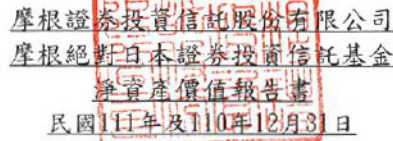 摩根證券投資信託股份有限公司
摩根絕對日本證券投資信託基金
淨資產價值報告書
民國111年及110年12月31日